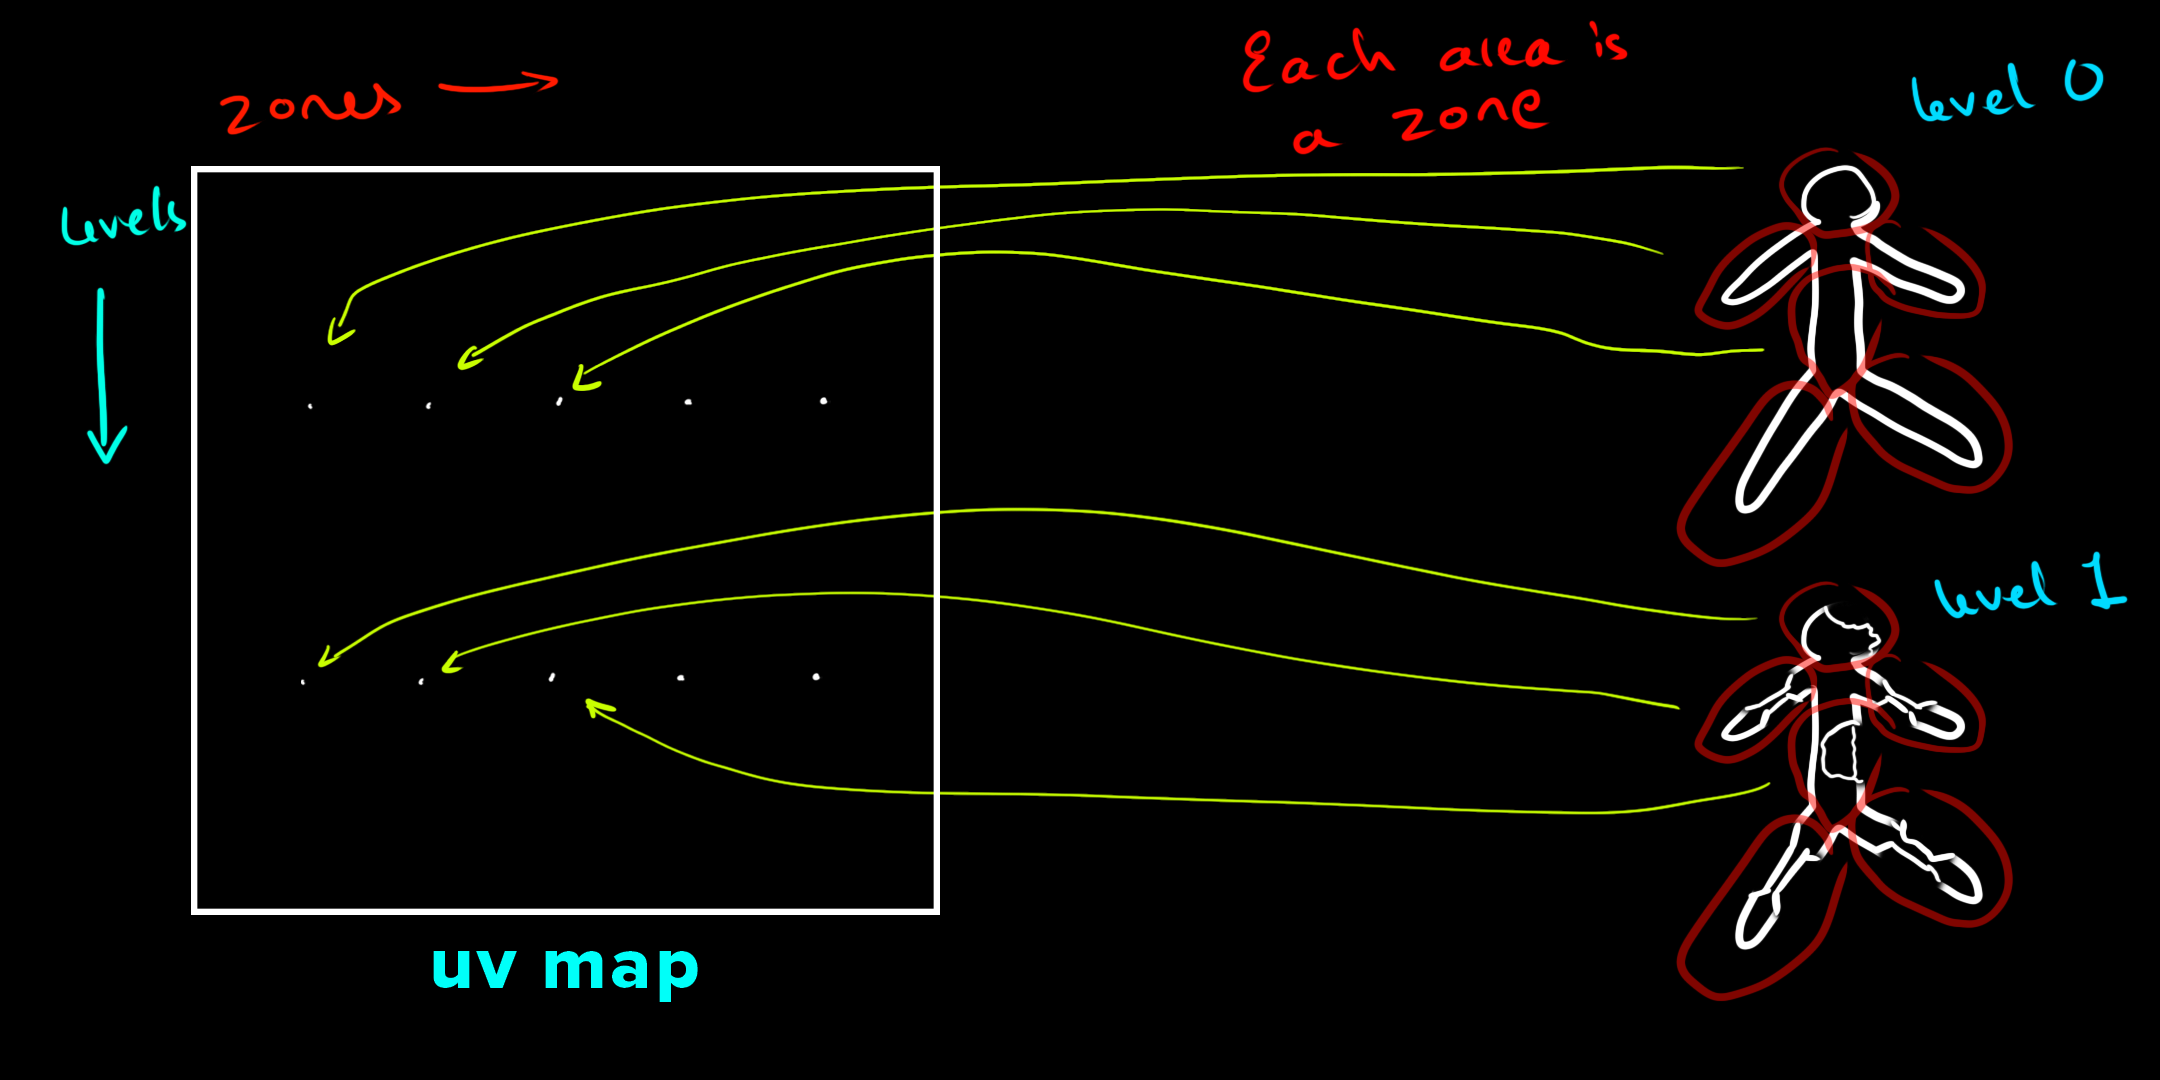 zones
Each area is
a zone
level 0
levels
level 1
uv map